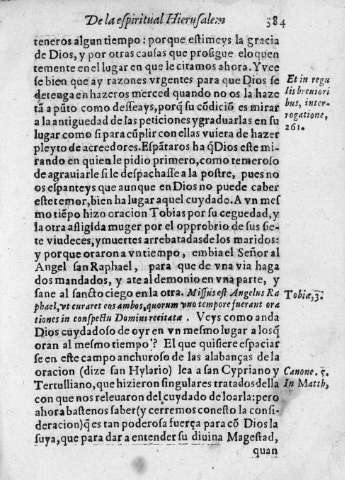 De la espiritual Hierusalem 384
teneros algun tiempo: porque estimeys la gracia
de Dios, y por otras causas que prosigue eloquen
temente en el lugar en que le citamos ahora. Y vee
se bien que ay razones vrgentes para que Dios se
detenga en hazeros merced quando no os la haze
tã a pũto como desseays, porq̃ su cõdiciõ es mirar
a la antiguedad de las peticiones y graduarlas en su
lugar como si para cũplir con ellas vuiera de hazer
pleyto de acreedores. Espãtaros ha q̃ Dios este mi-
rando en quien le pidio primero, como temeroso
de agrauiarle si le despachasse a la postre, pues no
os espanteys que aunque en Dios no puede caber
este temor, bien ha lugar aquel cuydado. A vn mes
mo tiẽpo hizo oracion Tobias por su ceguedad, y
la otra afligida muger por el opprobrio de sus sie-
te viudeces, y muertes arrebatadas de los maridos:
y porque oraron a vn tiempo, embia el Señor al
Angel san Raphael, para que de vna via haga
dos mandados, y ate al demonio en vna parte, y
sane al sancto ciego en la otra. Missus est Angelus Ra
phael, vt curaret eos ambos, quorum vno tempore fuerant ora
tiones in conspectu Domini recitatæ. Veys como anda
Dios cuydadoso de oyr en vn mesmo lugar a los q̃
oran al mesmo tiempo? El que quisiere espaciar
se en este campo anchuroso de las alabanças de la
oracion (dize san Hylario) lea a san Cypriano y
Tertulliano, que hizieron singulares tratados della
con que nos releuaron del cuydado de loarla: pero
ahora bastenos saber (y cerremos con esto la consi-
deracion) q̃ es tan poderosa fuerça para cõ Dios la
suya, que para dar a entender su diuina Magestad,
quan
Et in regu
lis breuiori
bus, inter-
rogatione,
261.
Tobiæ, 3.
Canone. 5.
In Matth,